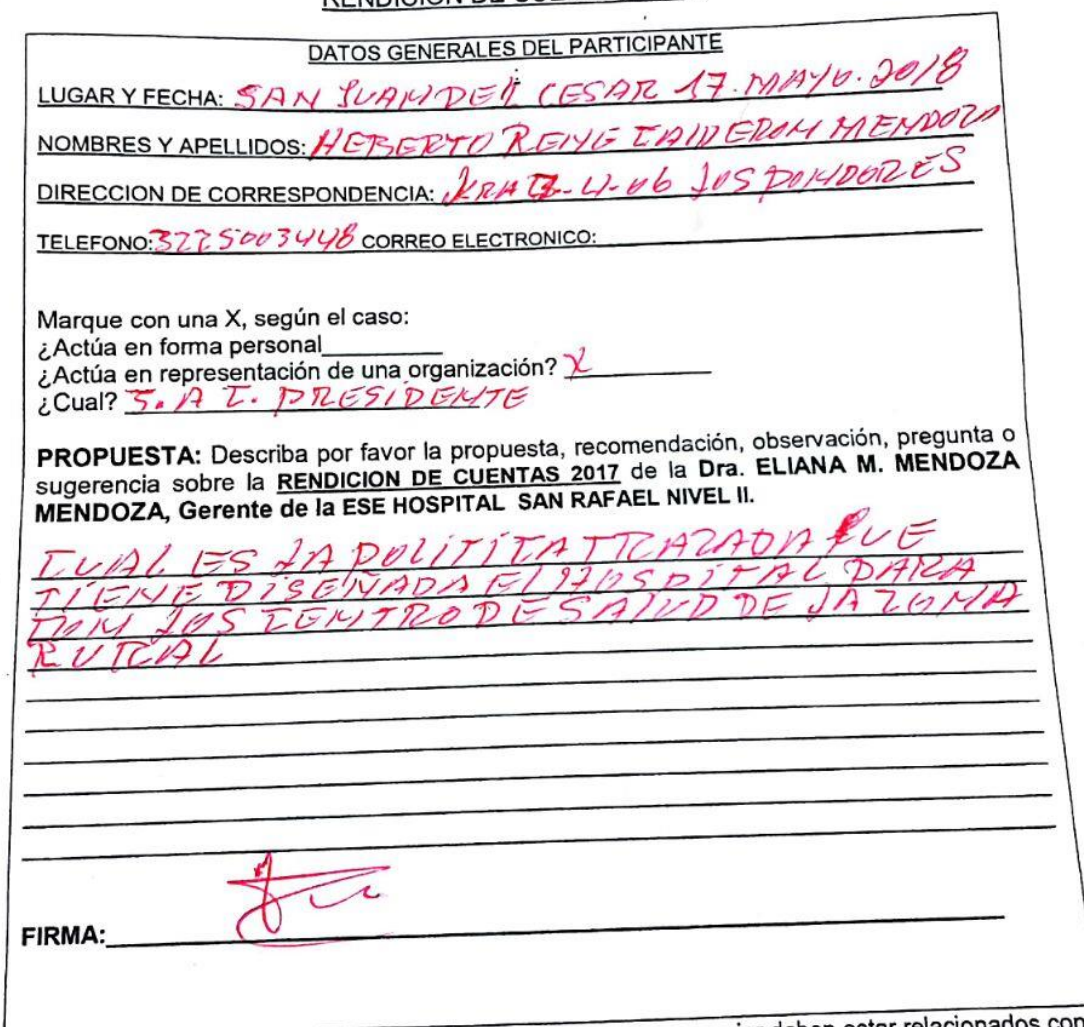 DATOS GENERALES DEL PARTICIPANTE
LUGAR Y FECHA: SAN JUAN DEL CESAR 17. MAYO. 2018
NOMBRES Y APELLIDOS: HEBERTO RENE CALDERON MENDOZA
DIRECCION DE CORRESPONDENCIA: KRA 4-06 LOS
TELEFONO: 3225003448 CORREO ELECTRONICO:
Marque con una X, según el caso:
¿Actúa en forma personal
¿Actúa en representación de una organización? X
¿Cual? PRESIDENTE
PROPUESTA: Describa por favor la propuesta, recomendación, observación, pregunta o
sugerencia sobre la RENDICION DE CUENTAS 2017 de la Dra. ELIANA M. MENDOZA
MENDOZA, Gerente de la ESE HOSPITAL SAN RAFAEL NIVEL II.
CUAL ES LA POLITICA TRAZADA QUE
TIENE DISEÑADA EL HOSPITAL PARA
CON LOS CENTRO DE SALUD DE LA ZONA
RURAL
FIRMA:
deben estar relacionados con